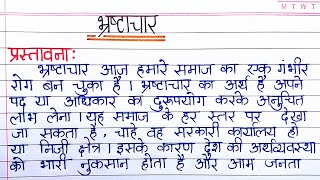 M T W T
भ्रष्टाचार
प्रस्तावना:
भ्रष्टाचार आज हमारे समाज का एक गंभीर
रोग बन चुका है । भ्रष्टाचार का अर्थ है अपने
पद या अधिकार का दुरुपयोग करके अनुचित
लाभ लेना । यह समाज के हर स्तर पर देखा
जा सकता है , चाहे वह सरकारी कार्यालय हो
या निजी क्षेत्र । इसके कारण देश की अर्थव्यवस्था
को भारी नुकसान होता है और आम जनता